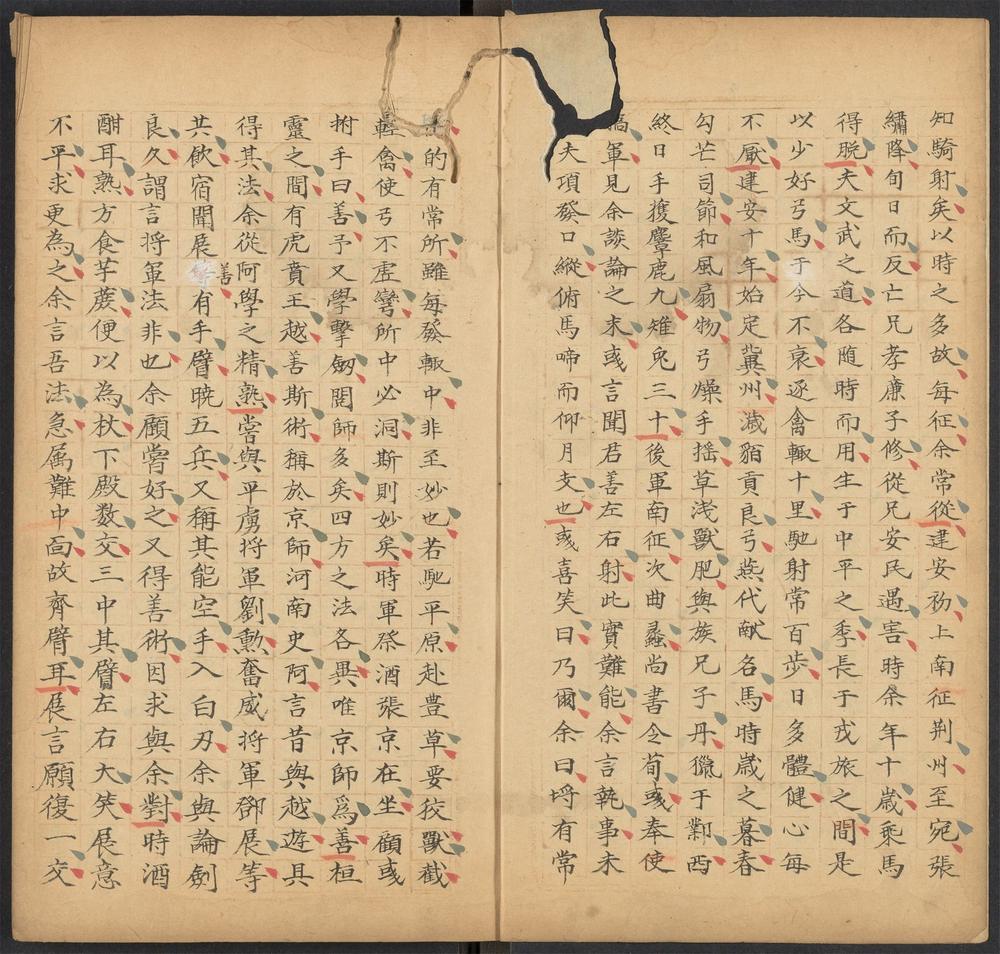 知騎射矣以時之多故每征余常從建安初上南征荆州至宛張
繡降旬日而反亡兄孝廉子修從兄安民遇害時余年十歲乘馬
得脱夫文武之道各随時而用生于中平之季長于戎旅之間是
以少好弓馬于今不衰逐禽輒十里馳射常百步日多體健心每
不厭建安十年始定冀州濊貊貢良弓燕代献名馬時歲之暮春
勾芒司節和風扇物弓燥手揺草浅獸肥與族兄子丹獵于鄴西
終日手獲麞鹿九雉兎三十後軍南征次曲蠡尚書令荀彧奉使
犒軍見余談論之末彧言聞君善左右射此實難能余言執事未
夫項發口縱俯馬啼而仰月支也彧喜笑曰乃爾余曰埒有常
的有常所雖每發輒中非至妙也若馳平原赴豊草要狡獸截
輕禽使弓不虚彎所中必洞斯則妙矣時軍祭酒張京在坐顧彧
拊手曰善予又學擊劔閲師多矣四方之法各異唯京師爲善桓
靈之間有虎賁王越善斯術稱於京師河南史阿言昔與越遊具
得其法余從阿學之精熟嘗與平虜将軍劉勲奮威将軍鄧展等
共飲宿聞展善有手臂暁五兵又稱其能空手入白刃余與論劍
良久謂言将軍法非也余顧嘗好之又得善術因求與余對時酒
酣耳熟方食芋蔗便以為杖下殿数交三中其臂左右大笑展意
不平求更為之余言吾法急属難中面故齊臂耳展言願復一交